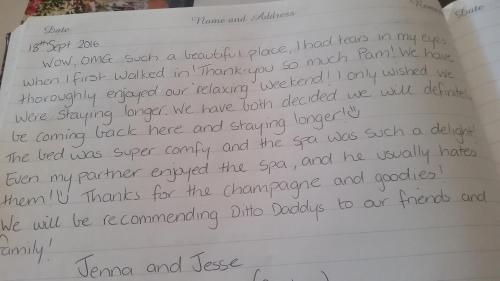 Date Name and Address Date
18th Sept 2016
Wow, OMG such a beautiful place, I had tears in my eyes
when I first walked in! Thank-you so much Pam! We have
thoroughly enjoyed our "relaxing" weekend! I only wished we
were staying longer. We have both decided we will definitely
be coming back here and staying longer!
The bed was super comfy and the spa was such a delight
Even my partner enjoyed the spa, and he usually hates
them! Thanks for the champagne and goodies!
We will be recommending Ditto Daddys to our friends and
family!
Jenna and Jesse